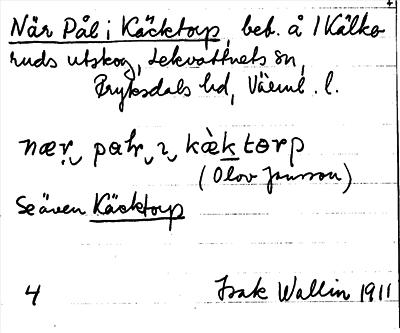 När Pål i Käcktorp, beb. å 1 Kälke-
ruds utskog, Lekvattnets sn,
Fryksdals hd, Värml. l.
nær, pɑƚr, ɩ kæ̀ktɵrp
(Olov Jansson)
Se även Käcktorp
4 Isak Wallin 1911